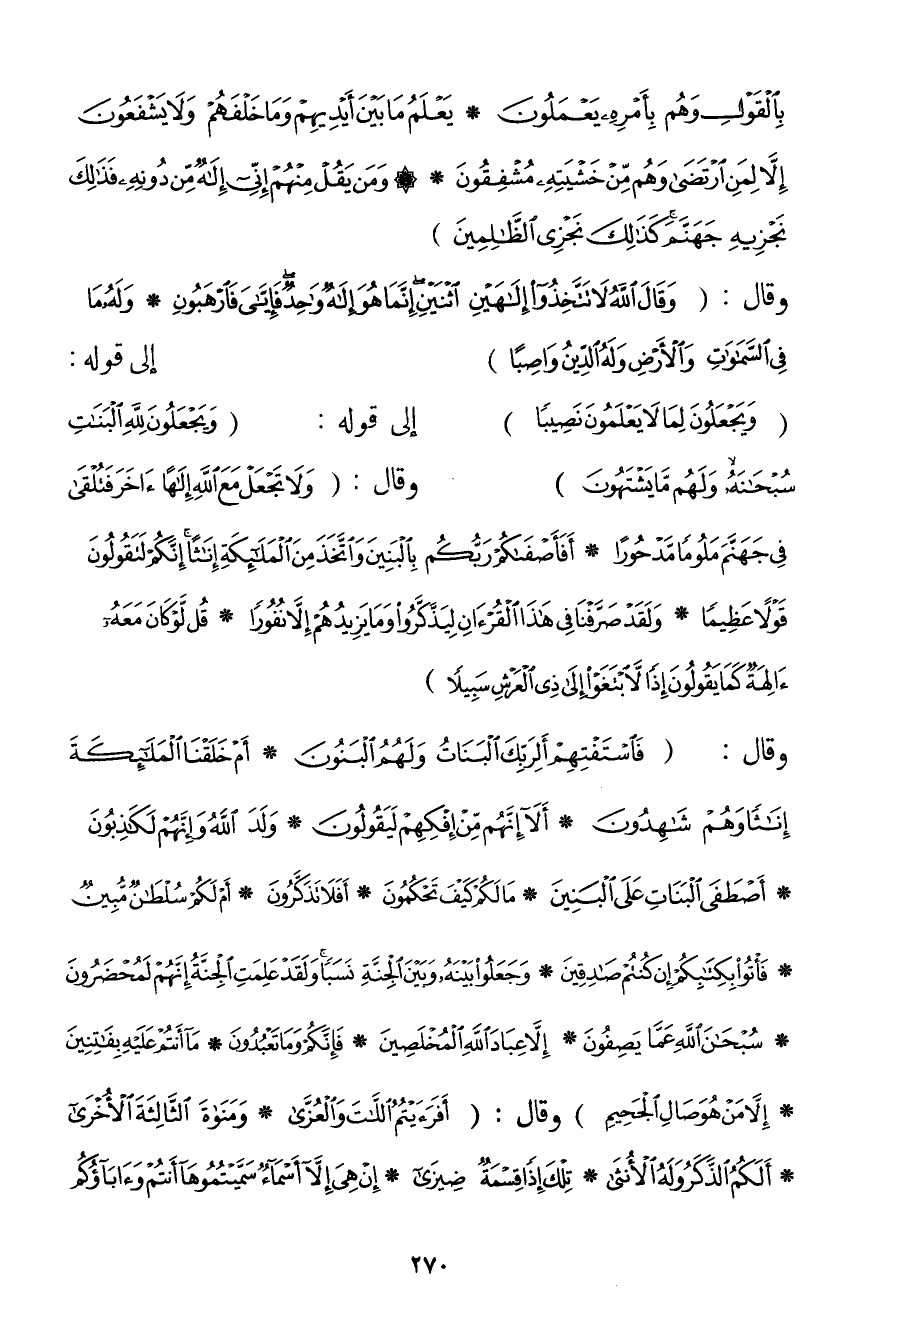 بِٱلْقَوْلِ وَهُم بِأَمْرِهِۦ يَعْمَلُونَ * يَعْلَمُ مَا بَيْنَ أَيْدِيهِمْ وَمَا خَلْفَهُمْ وَلَا يَشْفَعُونَ
إِلَّا لِمَنِ ٱرْتَضَىٰ وَهُم مِّنْ خَشْيَتِهِۦ مُشْفِقُونَ * ۞ وَمَن يَقُلْ مِنْهُمْ إِنِّىٓ إِلَٰهٌ مِّن دُونِهِۦ فَذَٰلِكَ
نَجْزِيهِ جَهَنَّمَ ۚ كَذَٰلِكَ نَجْزِى ٱلظَّٰلِمِينَ )
وقال : ( وَقَالَ ٱللَّهُ لَا تَتَّخِذُوٓا۟ إِلَٰهَيْنِ ٱثْنَيْنِ ۖ إِنَّمَا هُوَ إِلَٰهٌ وَٰحِدٌ ۖ فَإِيَّٰىَ فَٱرْهَبُونِ * وَلَهُۥ مَا
فِى ٱلسَّمَٰوَٰتِ وَٱلْأَرْضِ وَلَهُ ٱلدِّينُ وَاصِبًا ) إلى قوله :
( وَيَجْعَلُونَ لِمَا لَا يَعْلَمُونَ نَصِيبًا ) إلى قوله : ( وَيَجْعَلُونَ لِلَّهِ ٱلْبَنَٰتِ
سُبْحَٰنَهُۥ ۙ وَلَهُم مَّا يَشْتَهُونَ ) وقال : ( وَلَا تَجْعَلْ مَعَ ٱللَّهِ إِلَٰهًا ءَاخَرَ فَتُلْقَىٰ
فِى جَهَنَّمَ مَلُومًا مَّدْحُورًا * أَفَأَصْفَىٰكُمْ رَبُّكُم بِٱلْبَنِينَ وَٱتَّخَذَ مِنَ ٱلْمَلَٰٓئِكَةِ إِنَٰثًا ۚ إِنَّكُمْ لَتَقُولُونَ
قَوْلًا عَظِيمًا * وَلَقَدْ صَرَّفْنَا فِى هَٰذَا ٱلْقُرْءَانِ لِيَذَّكَّرُوا۟ وَمَا يَزِيدُهُمْ إِلَّا نُفُورًا * قُل لَّوْ كَانَ مَعَهُۥٓ
ءَالِهَةٌ كَمَا يَقُولُونَ إِذًا لَّٱبْتَغَوْا۟ إِلَىٰ ذِى ٱلْعَرْشِ سَبِيلًا )
وقال : ( فَٱسْتَفْتِهِمْ أَلِرَبِّكَ ٱلْبَنَاتُ وَلَهُمُ ٱلْبَنُونَ * أَمْ خَلَقْنَا ٱلْمَلَٰٓئِكَةَ
إِنَٰثًا وَهُمْ شَٰهِدُونَ * أَلَآ إِنَّهُم مِّنْ إِفْكِهِمْ لَيَقُولُونَ * وَلَدَ ٱللَّهُ وَإِنَّهُمْ لَكَٰذِبُونَ
* أَصْطَفَى ٱلْبَنَاتِ عَلَى ٱلْبَنِينَ * مَا لَكُمْ كَيْفَ تَحْكُمُونَ * أَفَلَا تَذَكَّرُونَ * أَمْ لَكُمْ سُلْطَٰنٌ مُّبِينٌ
* فَأْتُوا۟ بِكِتَٰبِكُمْ إِن كُنتُمْ صَٰدِقِينَ * وَجَعَلُوا۟ بَيْنَهُۥ وَبَيْنَ ٱلْجِنَّةِ نَسَبًا ۚ وَلَقَدْ عَلِمَتِ ٱلْجِنَّةُ إِنَّهُمْ لَمُحْضَرُونَ
* سُبْحَٰنَ ٱللَّهِ عَمَّا يَصِفُونَ * إِلَّا عِبَادَ ٱللَّهِ ٱلْمُخْلَصِينَ * فَإِنَّكُمْ وَمَا تَعْبُدُونَ * مَآ أَنتُمْ عَلَيْهِ بِفَٰتِنِينَ
* إِلَّا مَنْ هُوَ صَالِ ٱلْجَحِيمِ ) وقال : ( أَفَرَءَيْتُمُ ٱللَّٰتَ وَٱلْعُزَّىٰ * وَمَنَوٰةَ ٱلثَّالِثَةَ ٱلْأُخْرَىٰٓ
* أَلَكُمُ ٱلذَّكَرُ وَلَهُ ٱلْأُنثَىٰ * تِلْكَ إِذًا قِسْمَةٌ ضِيزَىٰٓ * إِنْ هِىَ إِلَّآ أَسْمَآءٌ سَمَّيْتُمُوهَآ أَنتُمْ وَءَابَآؤُكُم
٢٧٠